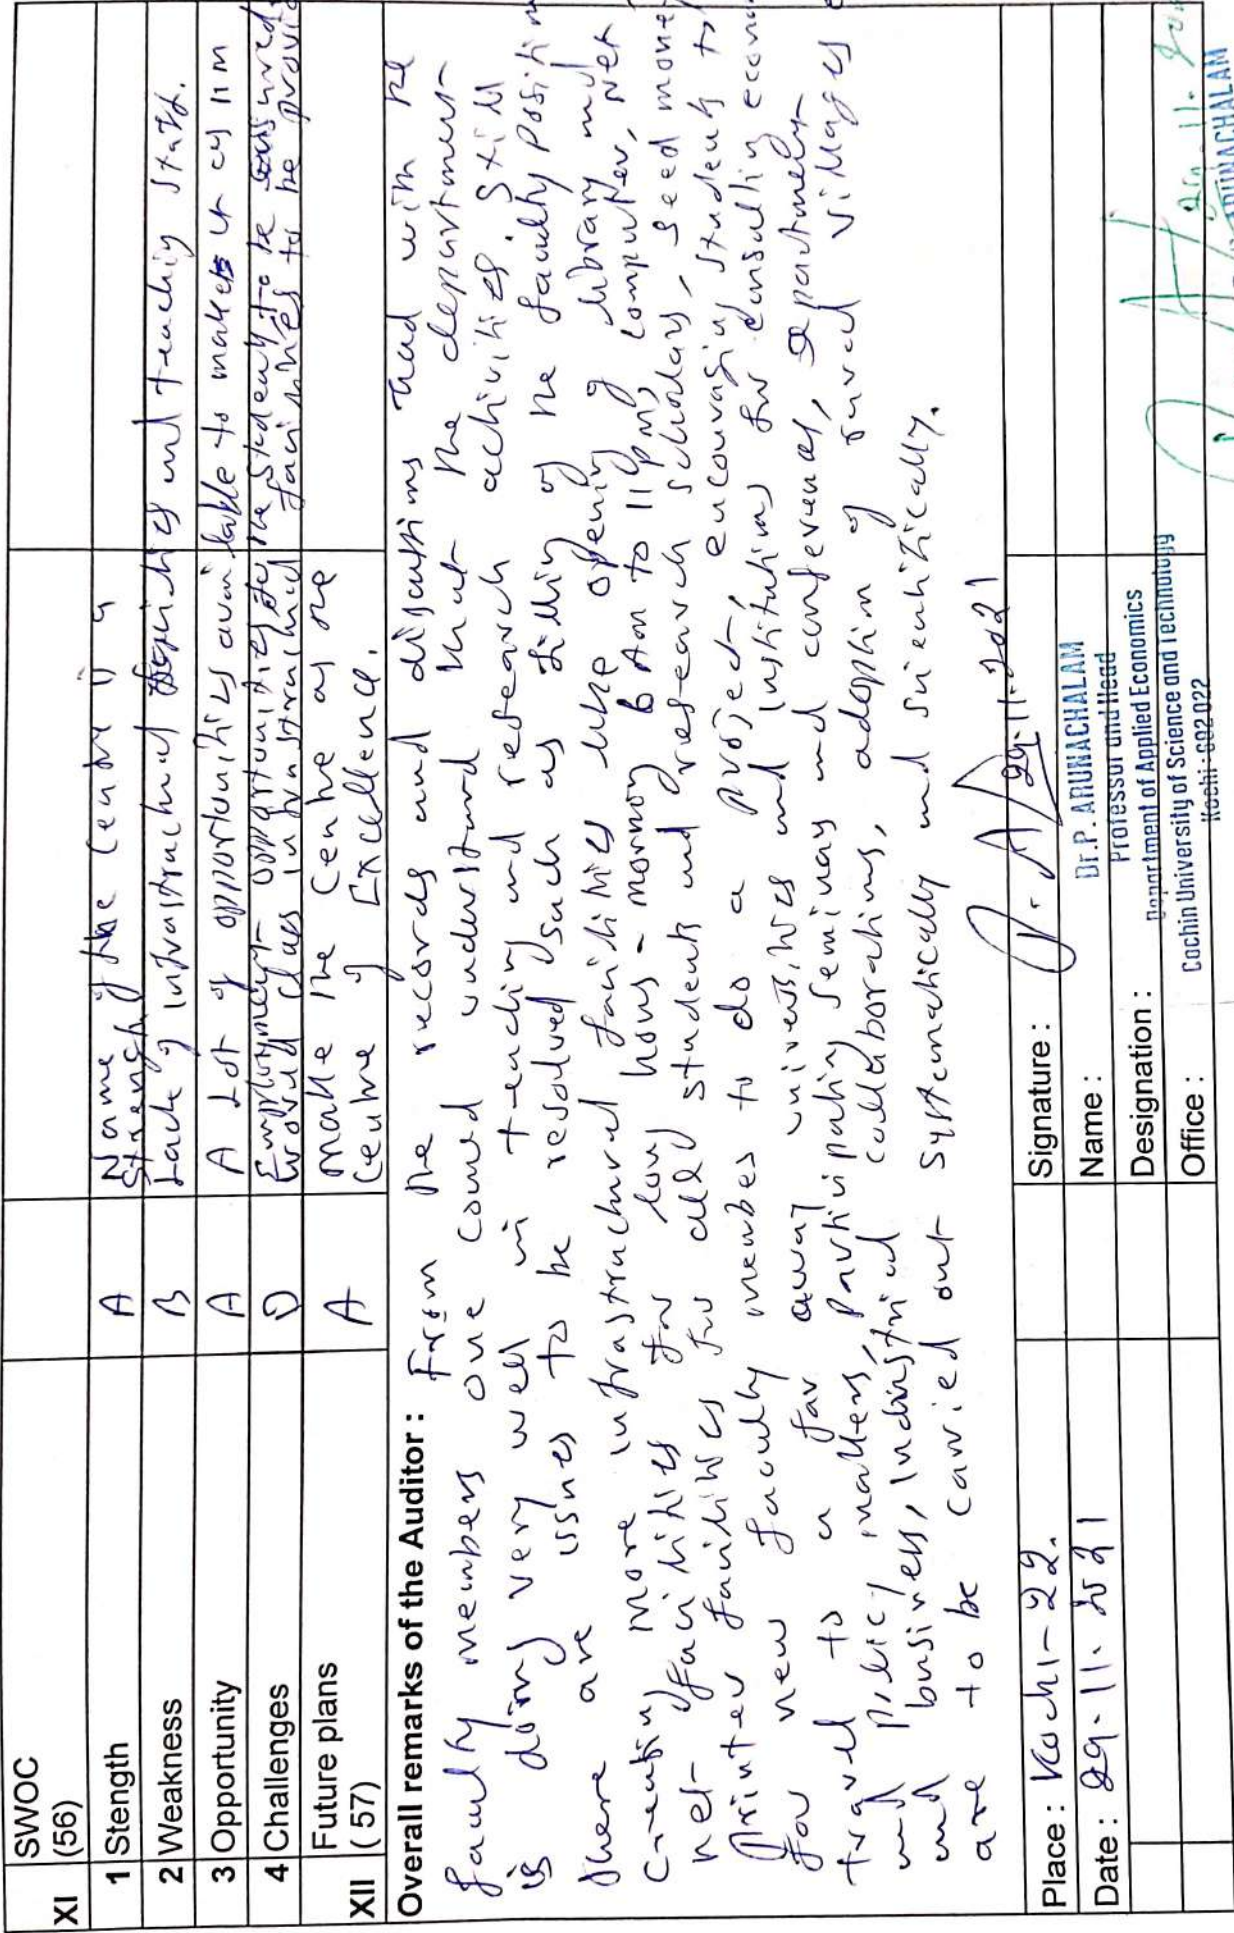 XI SWOC (56)
1 Stength A Name of the Centre is a Strength
2 Weakness B Lack of infrastructural and teaching staff.
3 Opportunity A A Lot of opportunities available to make it
4 Challenges D Employment opportunities to the students to be ensured
World class infrastructural facilities to be provided
XII Future plans (57) A Make the Centre as one
Centre of Excellence.
Overall remarks of the Auditor : From the records and discussions had with the
faculty members one could understand that the department
is doing very well in teaching and research activities. Still
there are issues to be resolved such as filling of the faculty position
Creating more infrastructural facilities like opening of library and
net facilities for long hours - morning 6 Am to 11 pm, computer, net
Printer facilities for all students and research scholars, seed money
for new faculty members to do a project, encouraging students to
travel to a far away universities and institutions for consulting
and policy matters, participating seminars and conferences, department
and business, Industrial collaborations, adoption of rural villages
are to be carried out systematically and scientifically.
Place : Kochi-22.
Date : 29.11.2021
Signature : P. A 29.11.2021
Name : Dr.P. ARUNACHALAM
Professor and Head
Designation : Department of Applied Economics
Office : Cochin University of Science and Technology
Kochi-682022
ARUNACHALAM